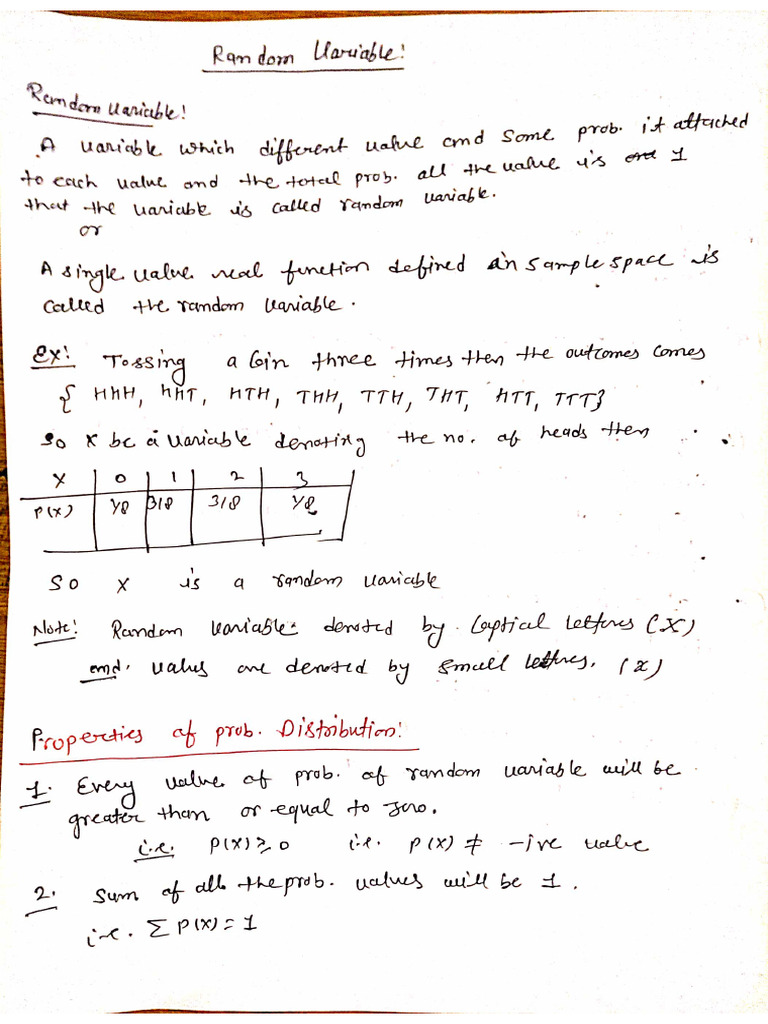 Random Variable!
Random Variable!
A variable which different value and some prob. it attached
to each value and the total prob. all the value is 1
that the variable is called random variable.
or
A single value real function defined in sample space is
called the random variable.
Ex: Tossing a Coin three times then the outcomes comes
{ HHH, HHT, HTH, THH, TTH, THT, HTT, TTT}
So X be a variable denoting the no. of heads then
X | 0 | 1 | 2 | 3
P(X) | 1/8 | 3/8 | 3/8 | 1/8
So X is a random variable
Note: Random Variable denoted by Captial lettres (X)
and values are denoted by small lettres. (x)
Properties of prob. Distribution:
1. Every value of prob. of random variable will be
greater than or equal to zero.
i.e. P(X) ≥ 0 i.e. P(X) ≠ -ive value
2. Sum of all the prob. values will be 1.
i.e. Σ P(X) = 1